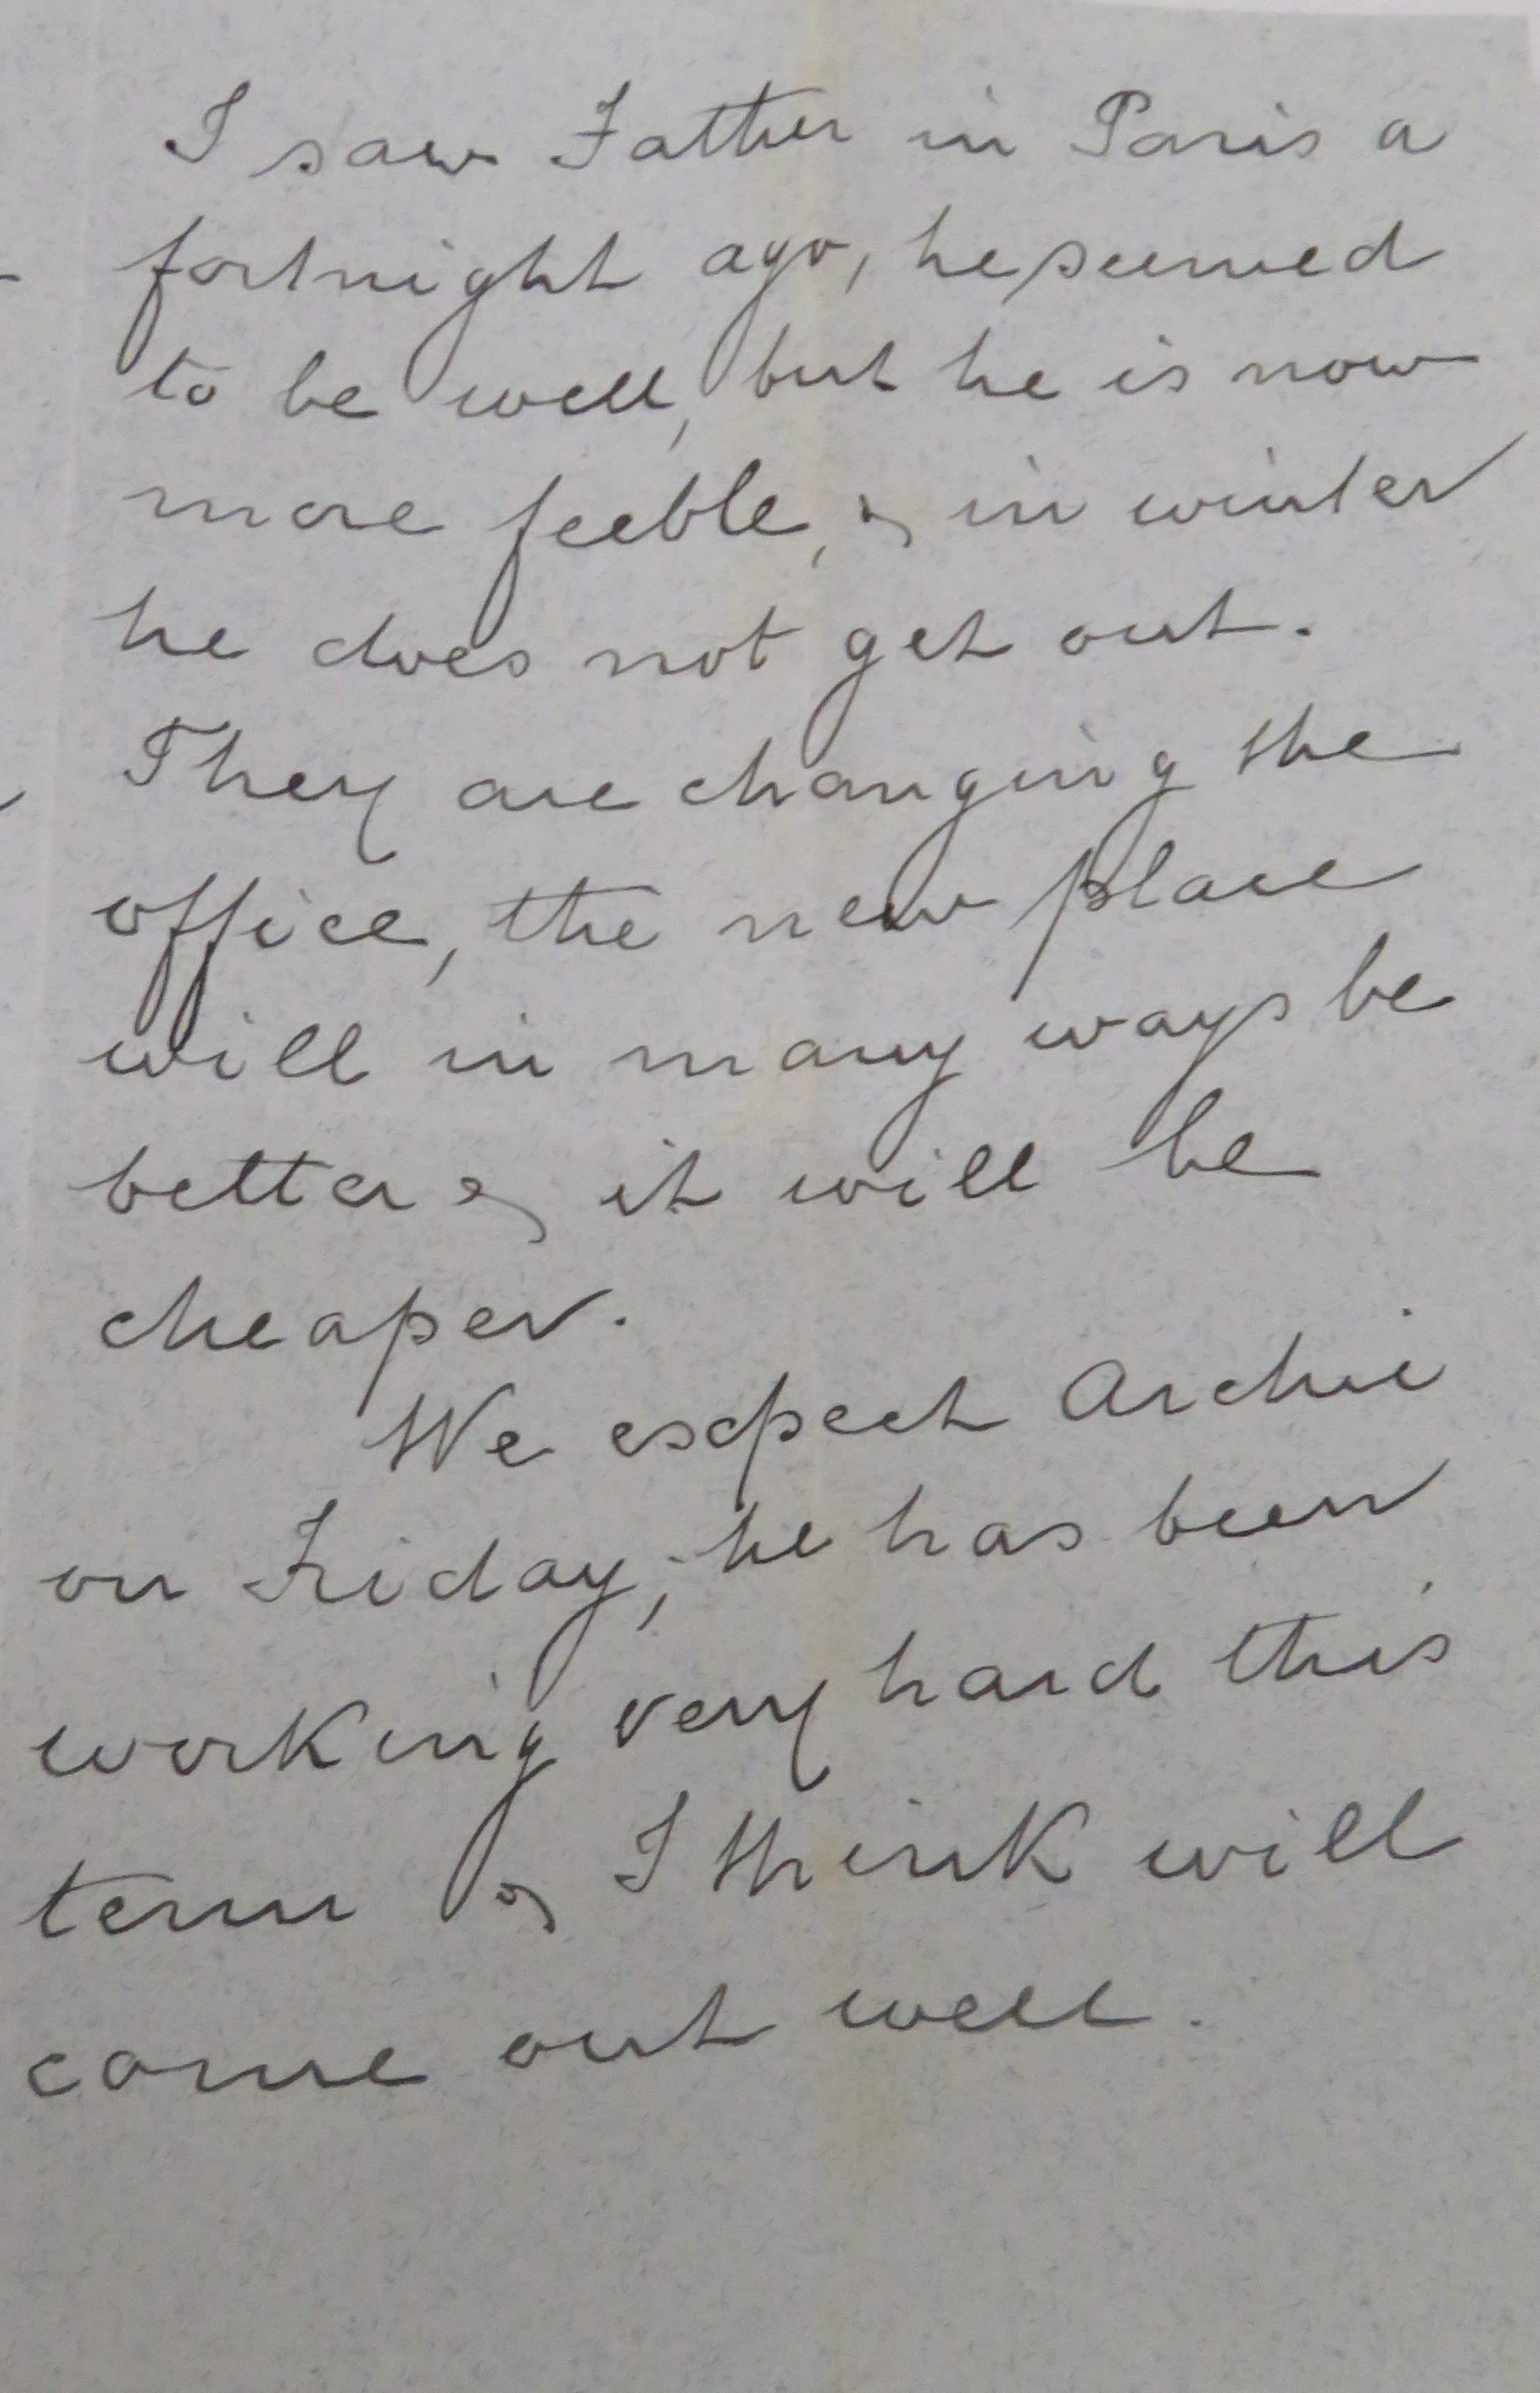 I saw Father in Paris a
fortnight ago, he seemed
to be well, but he is now
more feeble, & in winter
he does not get out.
They are changing the
office, the new place
will in many ways be
better & it will be
cheaper.
We expect Archie
on Friday; he has been
working very hard this
term & I think will
come out well.